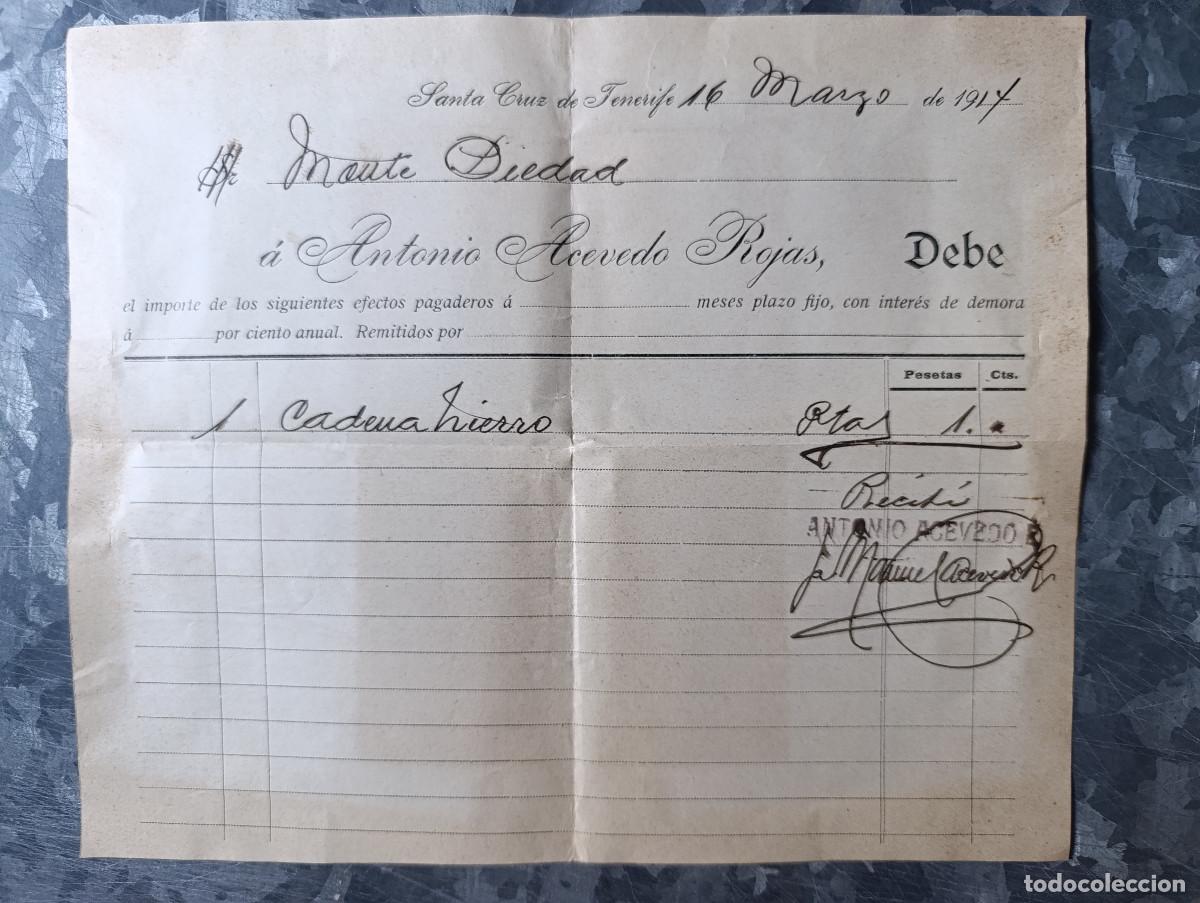 Santa Cruz de Tenerife 16 Marzo de 1914
Monte Piedad
á Antonio Acevedo Rojas, Debe
el importe de los siguientes efectos pagaderos á meses plazo fijo, con interés de demora
á por ciento anual. Remitidos por
Pesetas Cts.
1 Cadena hierro Ptas 1.
Recibí
ANTONIO ACEVEDO R
Manuel Acevedo R
todocoleccion